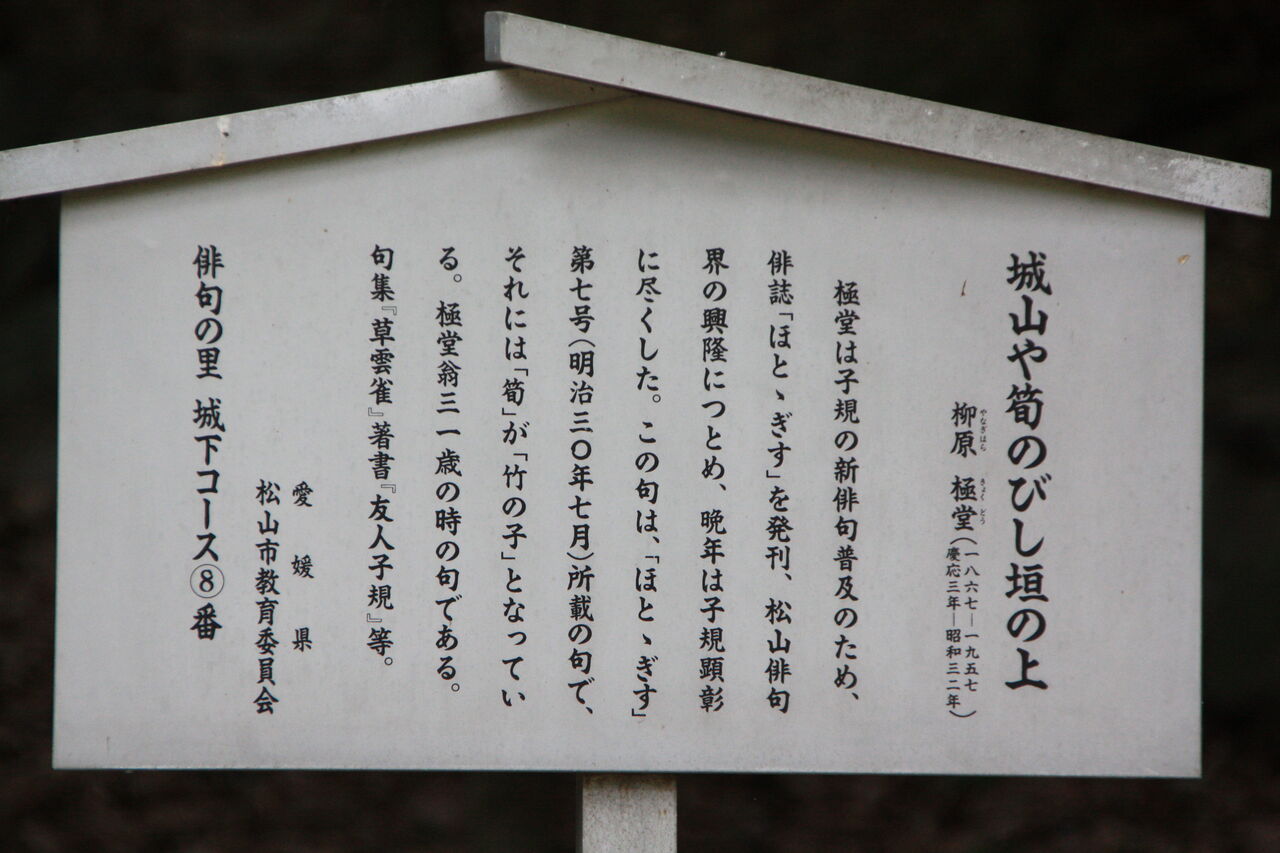 城山や筍のびし垣の上
柳原 極堂(一八六七―一九五七
慶応三年―昭和三二年)
やなぎはら きょくどう
極堂は子規の新俳句普及のため、
俳誌「ほとゝぎす」を発刊、松山俳句
界の興隆につとめ、晩年は子規顕彰
に尽くした。この句は、「ほとゝぎす」
第七号(明治三〇年七月)所載の句で、
それには「筍」が「竹の子」となってい
る。極堂翁三一歳の時の句である。
句集『草雲雀』著書『友人子規』等。
愛媛県
松山市教育委員会
俳句の里 城下コース⑧番